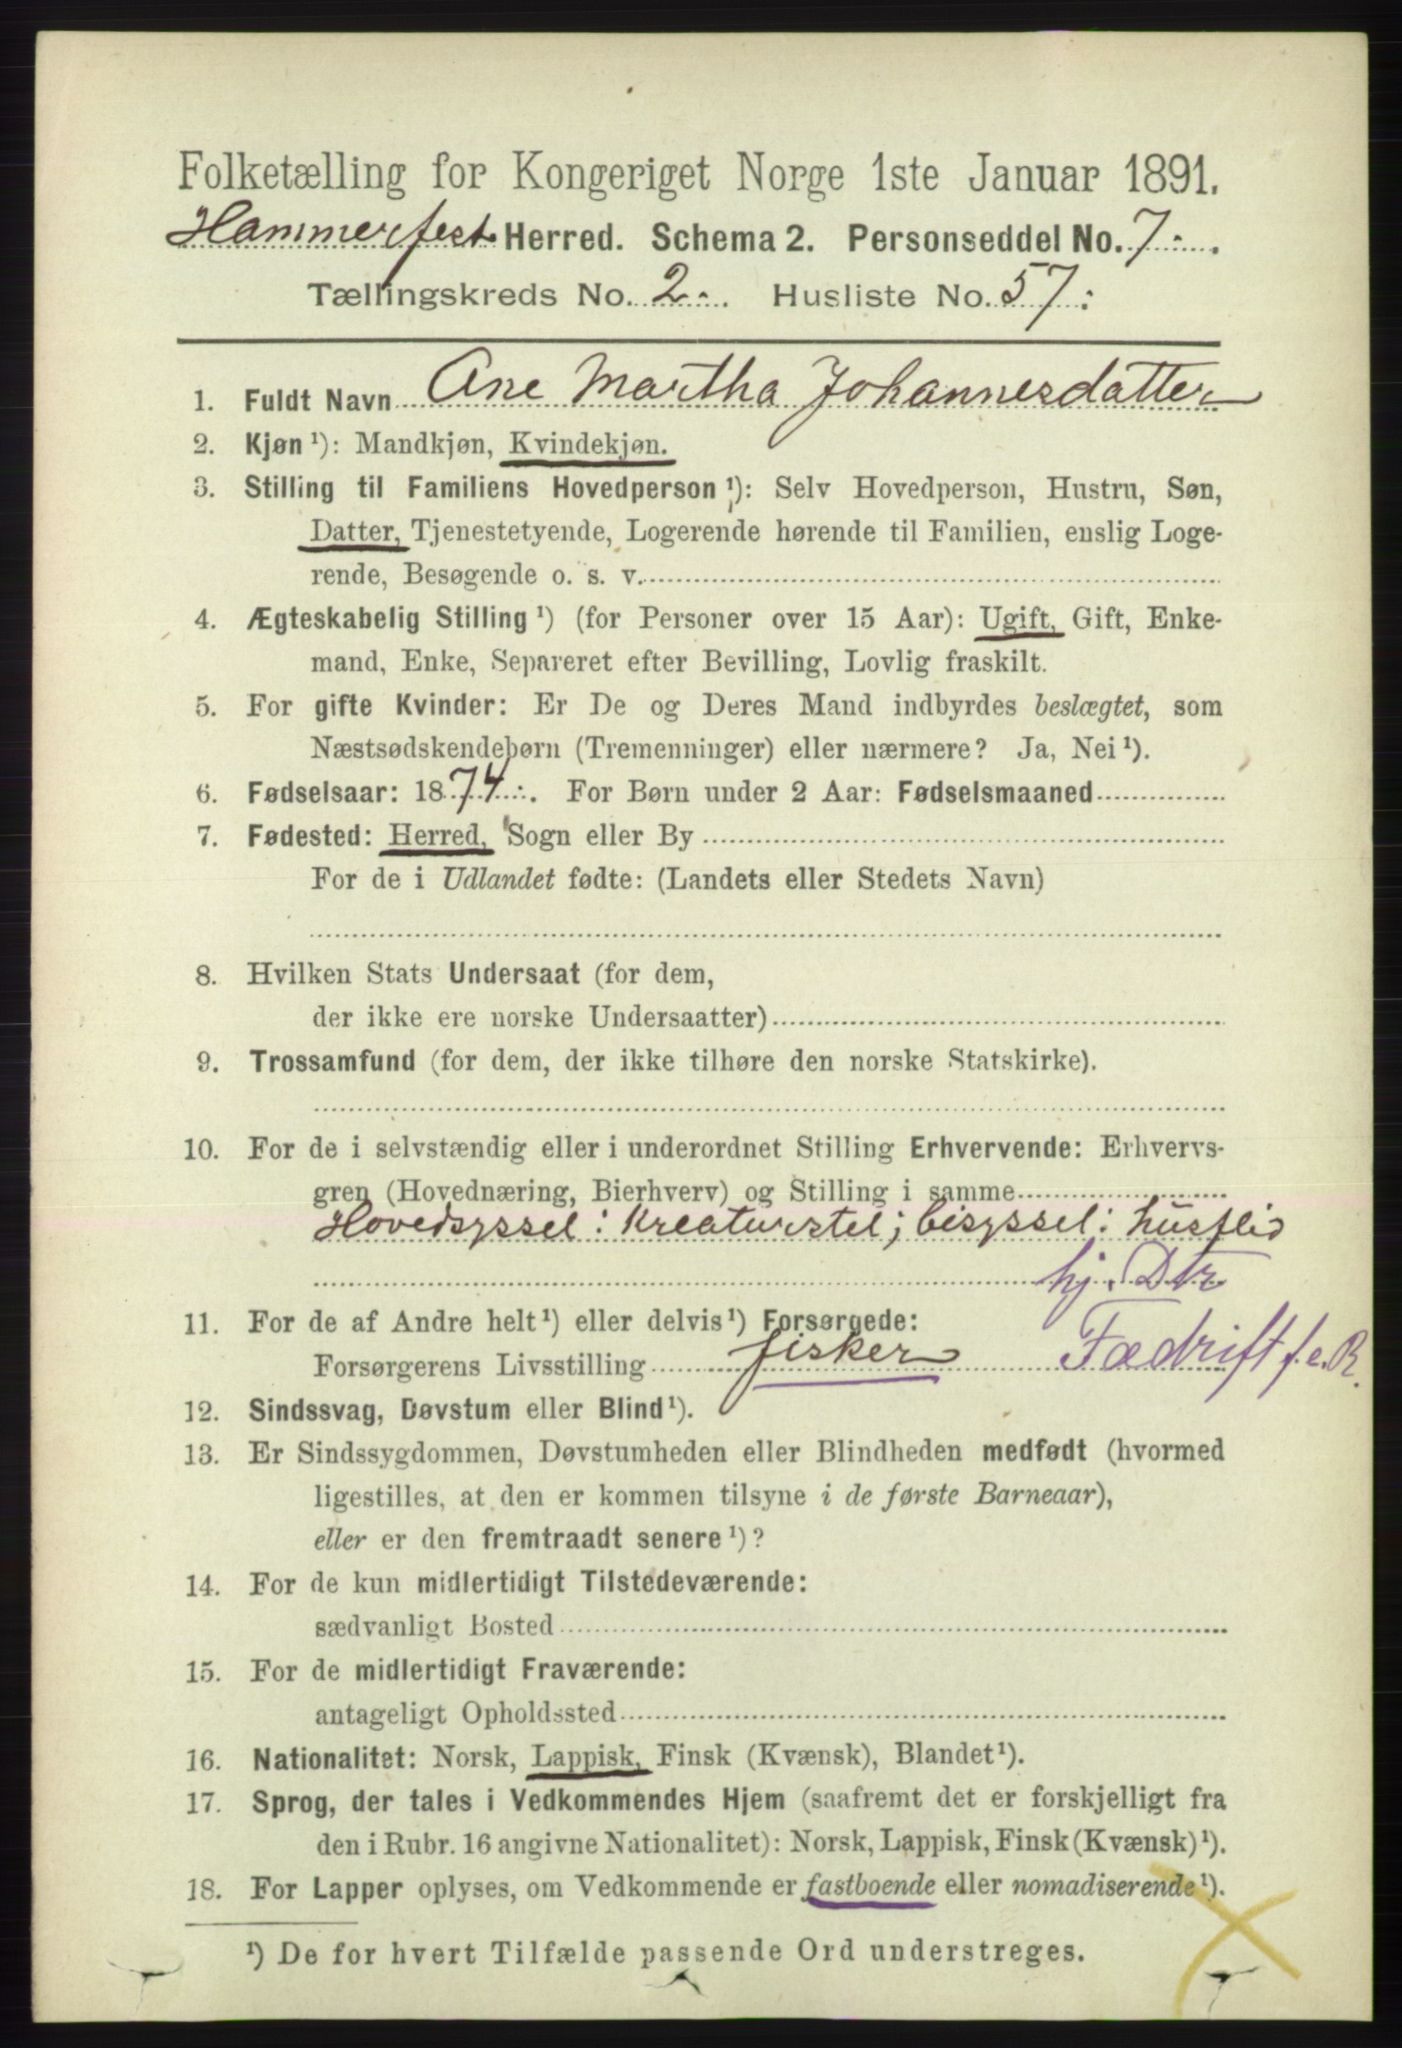 Folketælling for Kongeriget Norge 1ste Januar 1891.
Hammerfest Herred. Schema 2. Personseddel No. 7.
Tællingskreds No. 2. Husliste No. 57.
1. Fuldt Navn Ane Martha Johannesdatter
2. Kjøn ¹): Mandkjøn, Kvindekjøn.
3. Stilling til Familiens Hovedperson ¹): Selv Hovedperson, Hustru, Søn,
Datter, Tjenestetyende, Logerende hørende til Familien, enslig Loge-
rende, Besøgende o. s. v.
4. Ægteskabelig Stilling ¹) (for Personer over 15 Aar): Ugift, Gift, Enke-
mand, Enke, Separeret efter Bevilling, Lovlig fraskilt.
5. For gifte Kvinder: Er De og Deres Mand indbyrdes beslægtet, som
Næstsødskendebørn (Tremenninger) eller nærmere? Ja, Nei ¹).
6. Fødselsaar: 1874. For Børn under 2 Aar: Fødselsmaaned
7. Fødested: Herred, Sogn eller By
For de i Udlandet fødte: (Landets eller Stedets Navn)
8. Hvilken Stats Undersaat (for dem,
der ikke ere norske Undersaatter)
9. Trossamfund (for dem, der ikke tilhøre den norske Statskirke).
10. For de i selvstændig eller i underordnet Stilling Erhvervende: Erhvervs-
gren (Hovednæring, Bierhverv) og Stilling i samme
Hovedsyssel: Kreaturstel; bisyssel: husflid
hj. Dtr
11. For de af Andre helt ¹) eller delvis ¹) Forsørgede:
Forsørgerens Livsstilling fisker Fædrift f. e. R.
12. Sindssvag, Døvstum eller Blind ¹).
13. Er Sindssygdommen, Døvstumheden eller Blindheden medfødt (hvormed
ligestilles, at den er kommen tilsyne i de første Barneaar),
eller er den fremtraadt senere ¹)?
14. For de kun midlertidigt Tilstedeværende:
sædvanligt Bosted
15. For de midlertidigt Fraværende:
antageligt Opholdssted
16. Nationalitet: Norsk, Lappisk, Finsk (Kvænsk), Blandet ¹).
17. Sprog, der tales i Vedkommendes Hjem (saafremt det er forskjelligt fra
den i Rubr. 16 angivne Nationalitet): Norsk, Lappisk, Finsk (Kvænsk) ¹).
18. For Lapper oplyses, om Vedkommende er fastboende eller nomadiserende ¹).
¹) De for hvert Tilfælde passende Ord understreges.